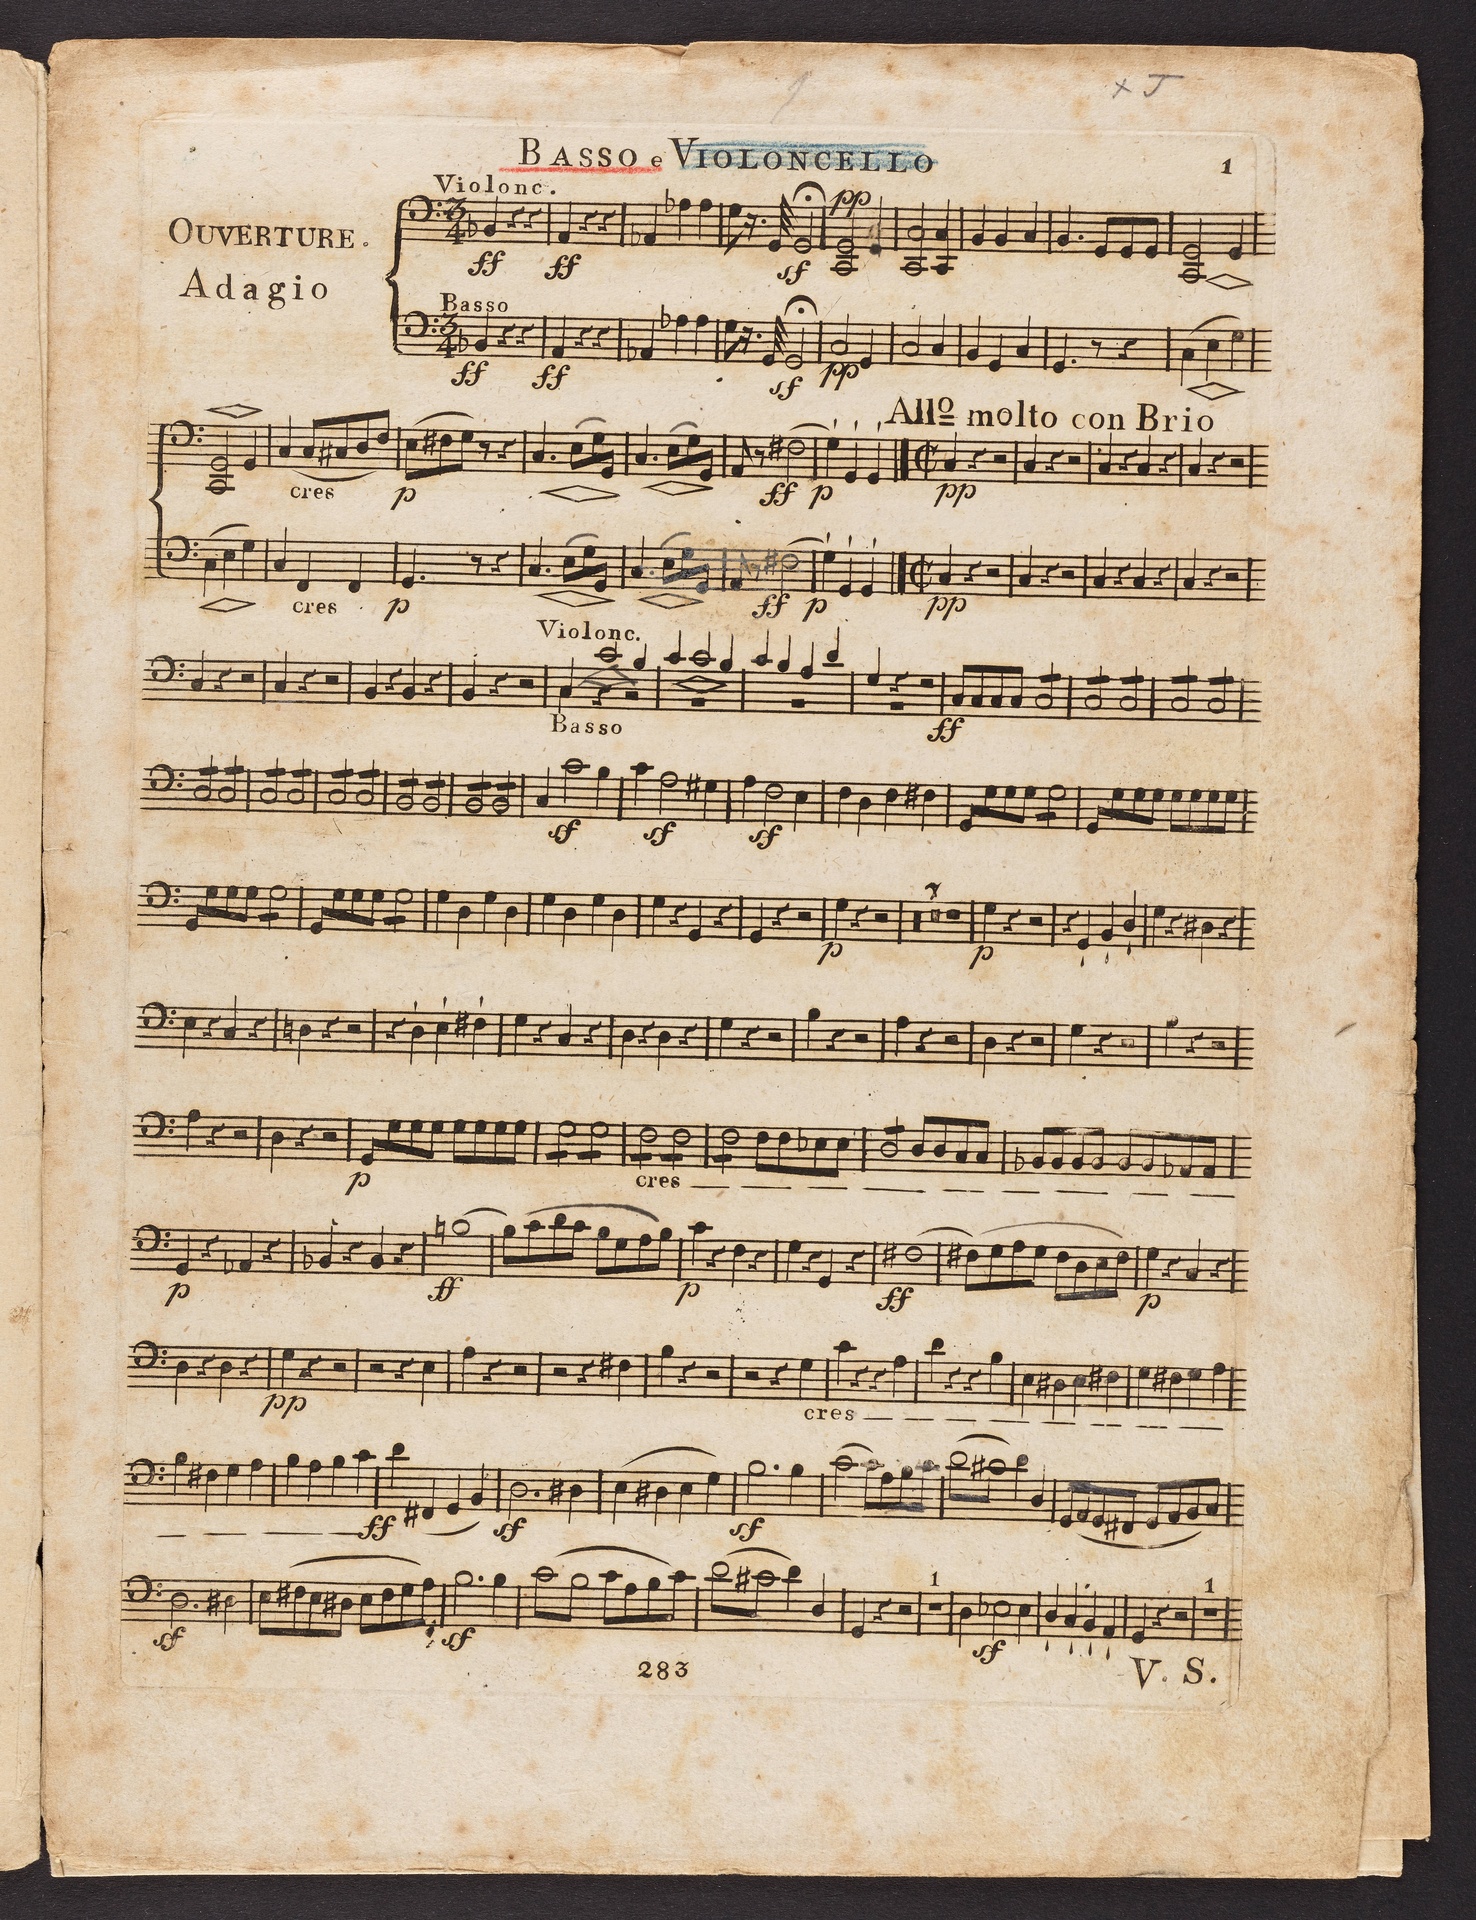 x J
BASSO e VIOLONCELLO
1
Violonc.
OUVERTURE.
Adagio
pp
ff ff sf
Basso
ff ff sf pp
Allº molto con Brio
cres p ff p pp
cres p ff p pp
Violonc.
Basso
ff
sf sf sf
p p
p cres
p ff p ff p
pp cres
ff sf sf
1 1
sf sf sf
283
V. S.